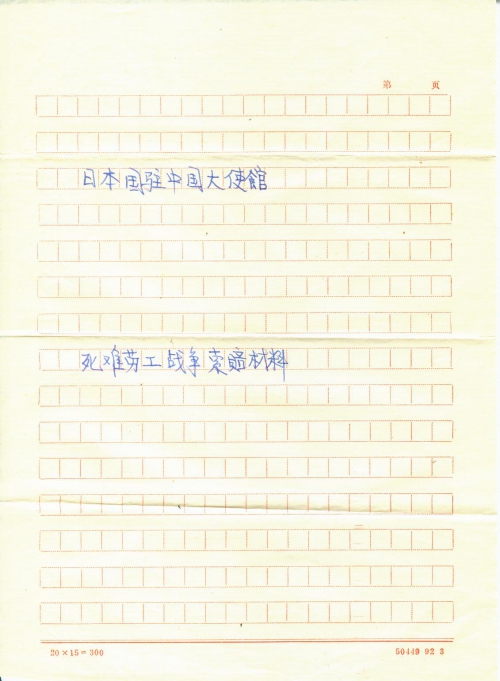 第 页
日本国驻中国大使館
死难劳工战争索赔材料
20×15=300 50449 92 3